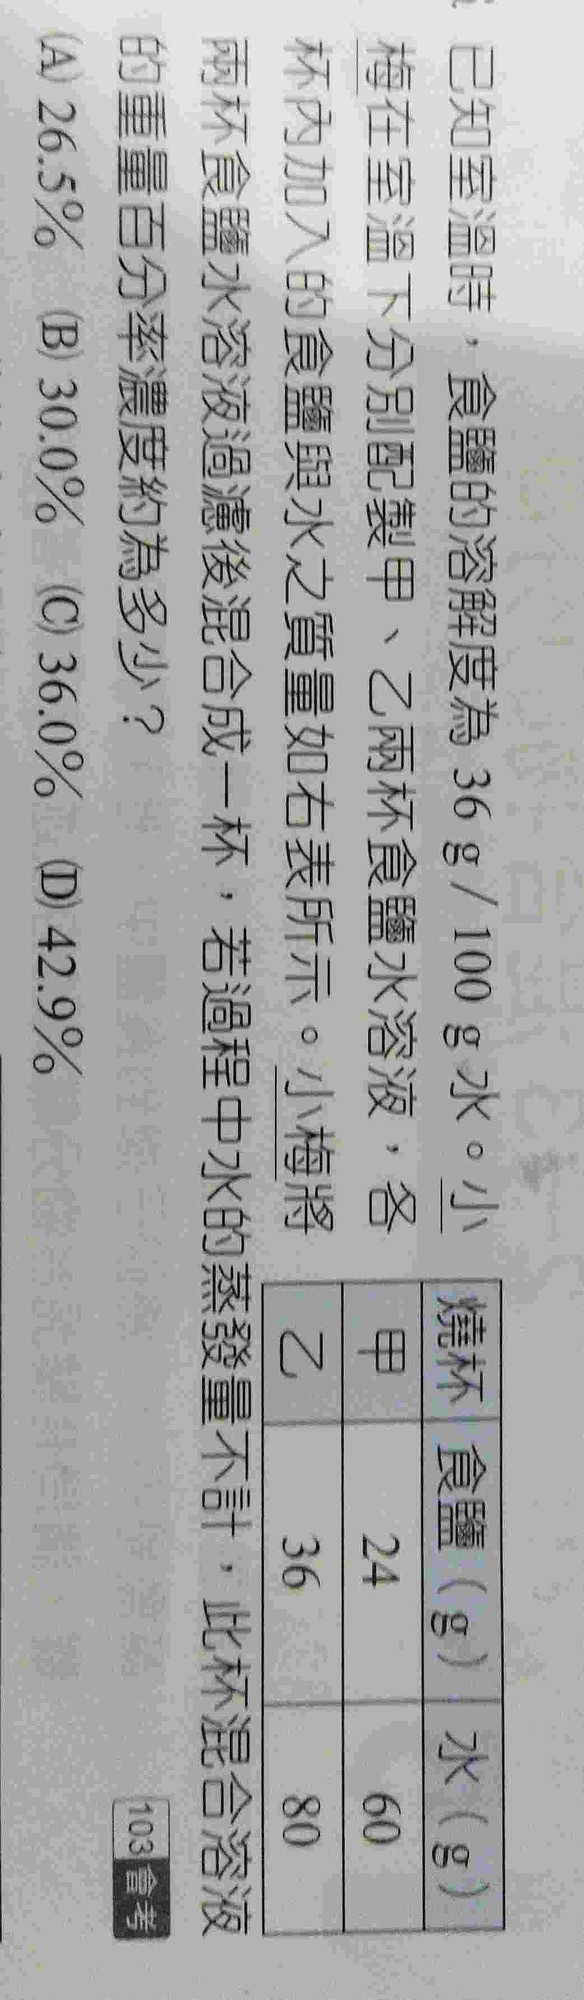 已知室溫時，食鹽的溶解度為 36 g / 100 g 水。小
梅在室溫下分別配製甲、乙兩杯食鹽水溶液，各
杯內加入的食鹽與水之質量如右表所示。小梅將
兩杯食鹽水溶液過濾後混合成一杯，若過程中水的蒸發量不計，此杯混合溶液
的重量百分率濃度約為多少？
103 會考
(A) 26.5% (B) 30.0% (C) 36.0% (D) 42.9%
燒杯 食鹽（g） 水（g）
甲 24 60
乙 36 80